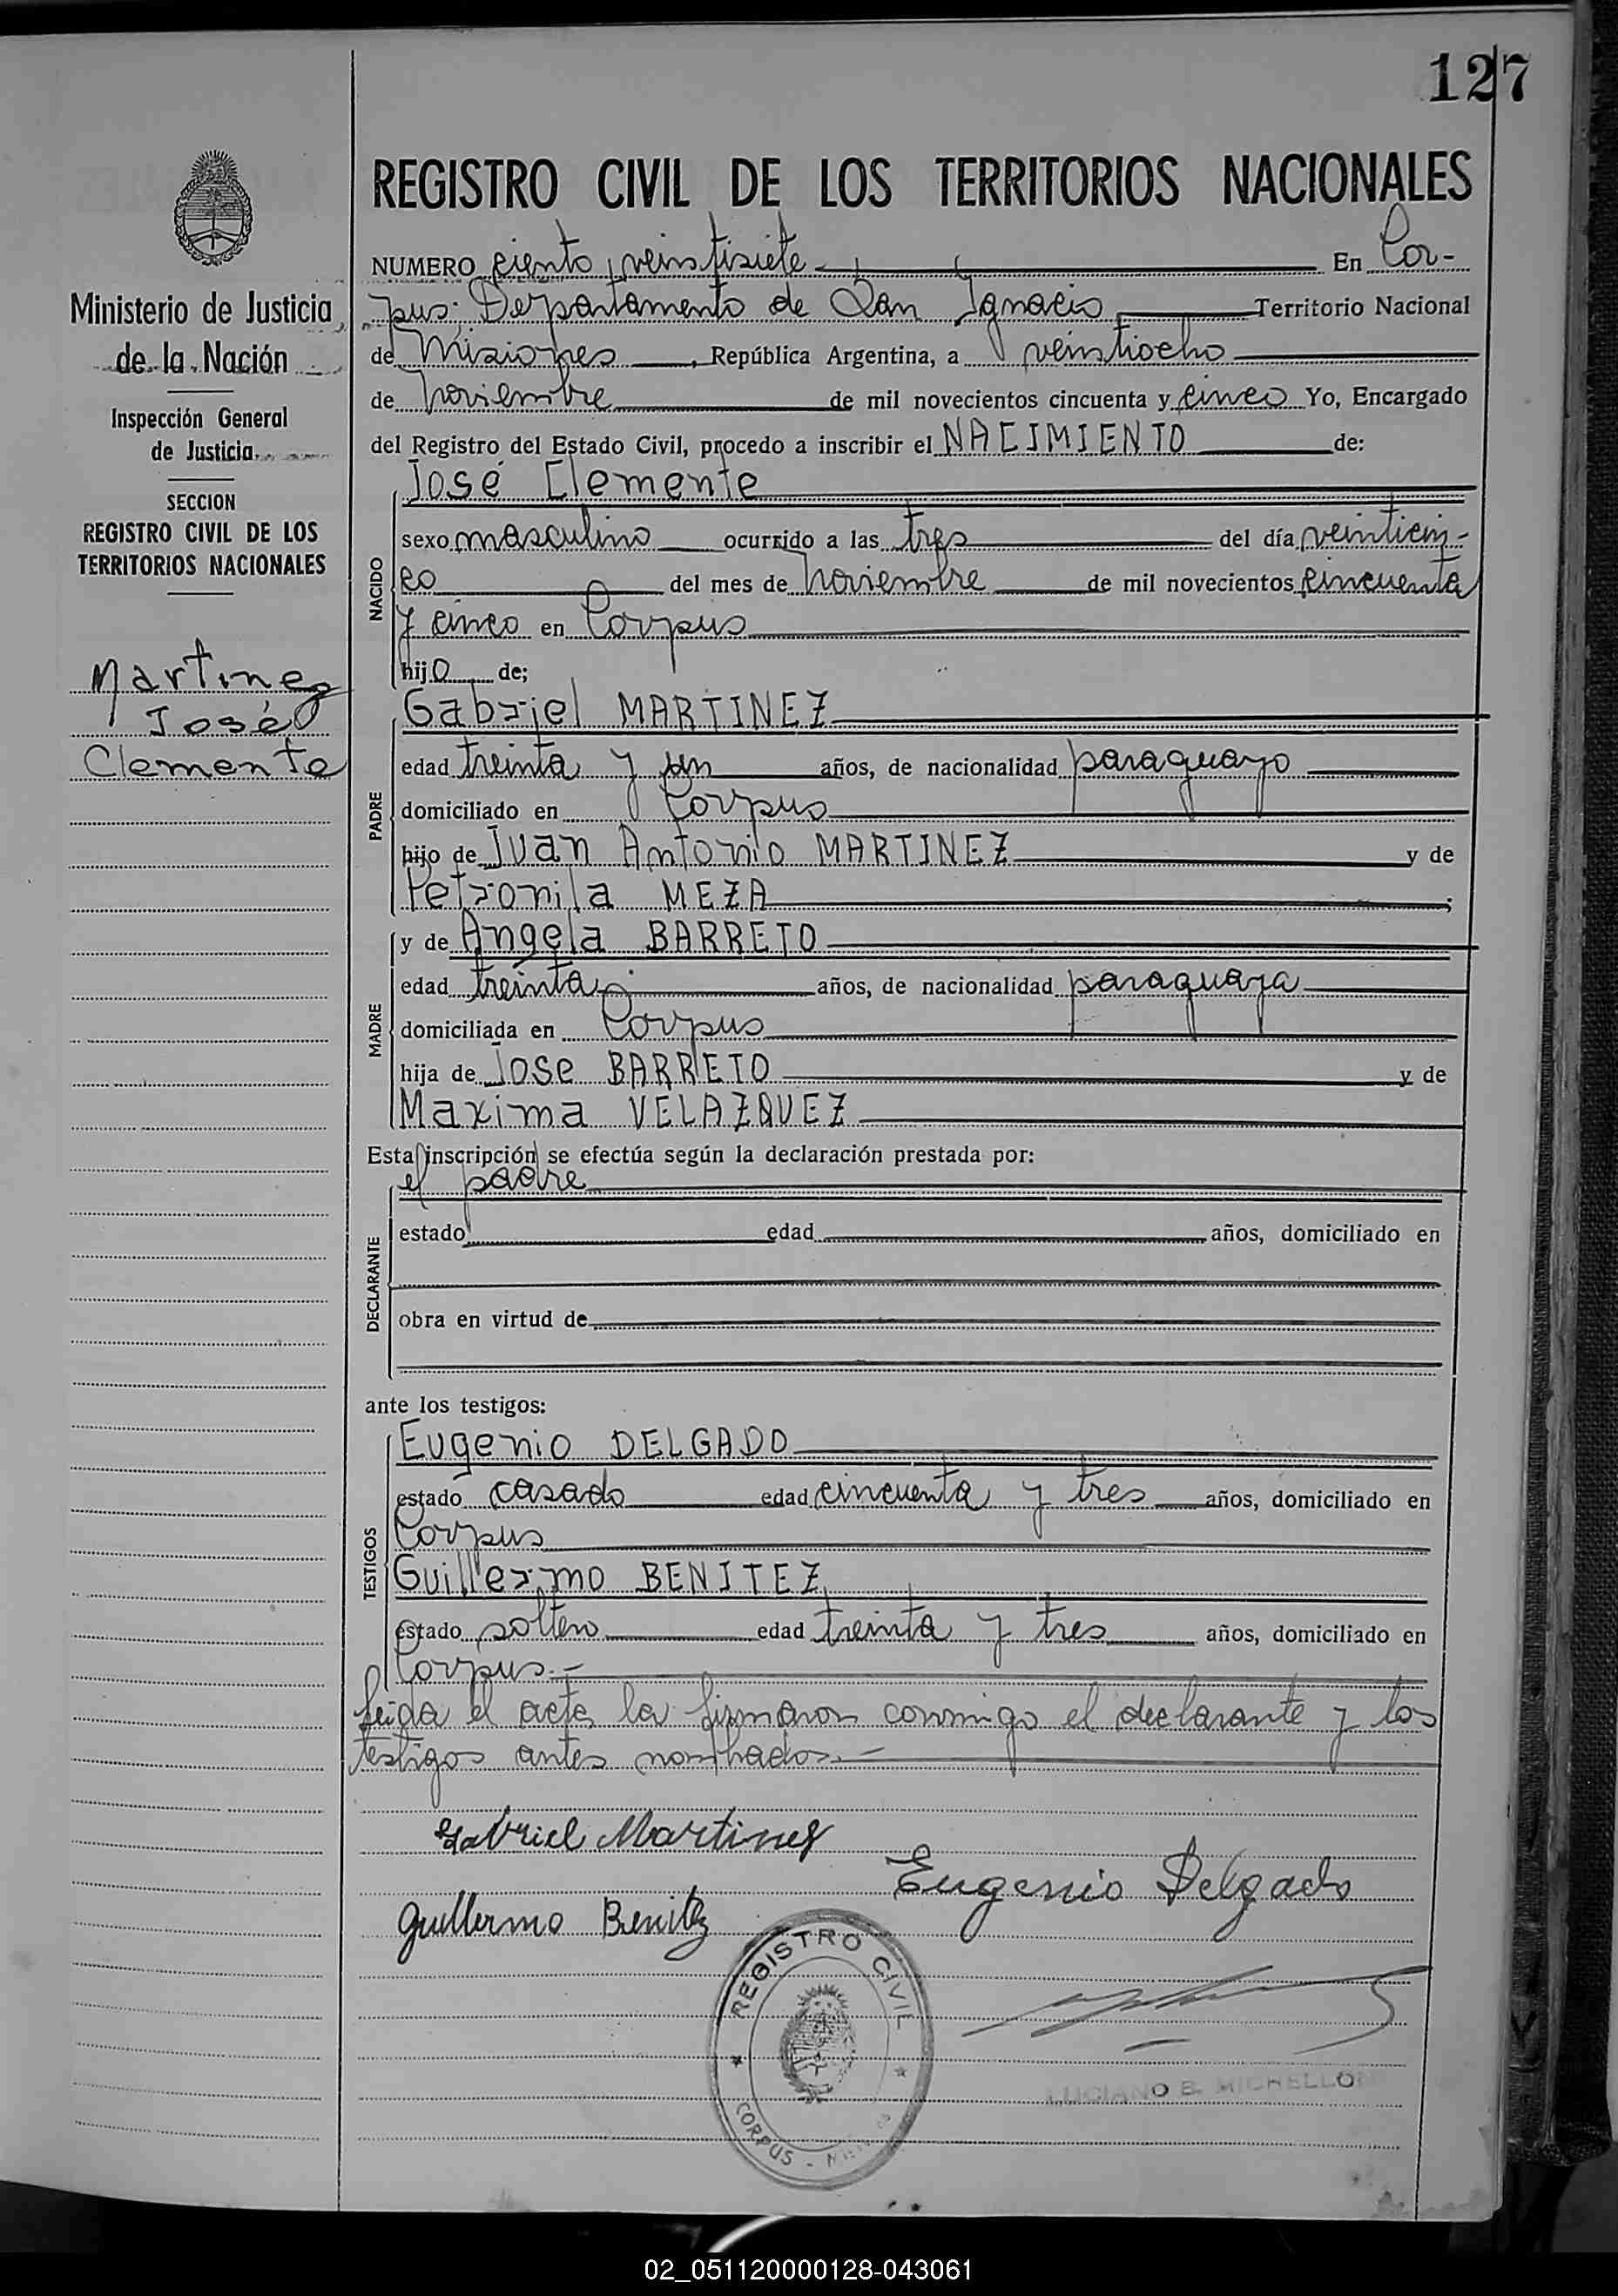 127
REGISTRO CIVIL DE LOS TERRITORIOS NACIONALES
Ministerio de Justicia
de la Nación
Inspección General
de Justicia
SECCION
REGISTRO CIVIL DE LOS
TERRITORIOS NACIONALES
Martinez
José
Clemente
NUMERO ciento veintisiete En Cor-
pus; Departamento de San Ignacio Territorio Nacional
de Misiones, República Argentina, a veintiocho
de noviembre de mil novecientos cincuenta y cinco Yo, Encargado
del Registro del Estado Civil, procedo a inscribir el NACIMIENTO de:
NACIDO
José Clemente
sexo masculino ocurrido a las tres del día veinticin-
co del mes de noviembre de mil novecientos cincuenta
y cinco en Corpus
hijo de;
PADRE
Gabriel MARTINEZ
edad treinta y un años, de nacionalidad paraguayo
domiciliado en Corpus
hijo de Juan Antonio MARTINEZ y de
Petronila MEZA;
MADRE
y de Angela BARRETO
edad treinta años, de nacionalidad paraguaya
domiciliada en Corpus
hija de Jose BARRETO y de
Maxima VELAZQUEZ
Esta inscripción se efectúa según la declaración prestada por:
DECLARANTE
el padre
estado edad años, domiciliado en
obra en virtud de
ante los testigos:
TESTIGOS
Eugenio DELGADO
estado casado edad cincuenta y tres años, domiciliado en
Corpus
Guillermo BENITEZ
estado soltero edad treinta y tres años, domiciliado en
Corpus.-
Leida el acta la firmaron conmigo el declarante y los
testigos antes nombrados.-
Gabriel Martinez
Eugenio Delgado
Guillermo Benitez
REGISTRO CIVIL
CORPUS -
LUCIANO B. MICHELLO
02_051120000128-043061